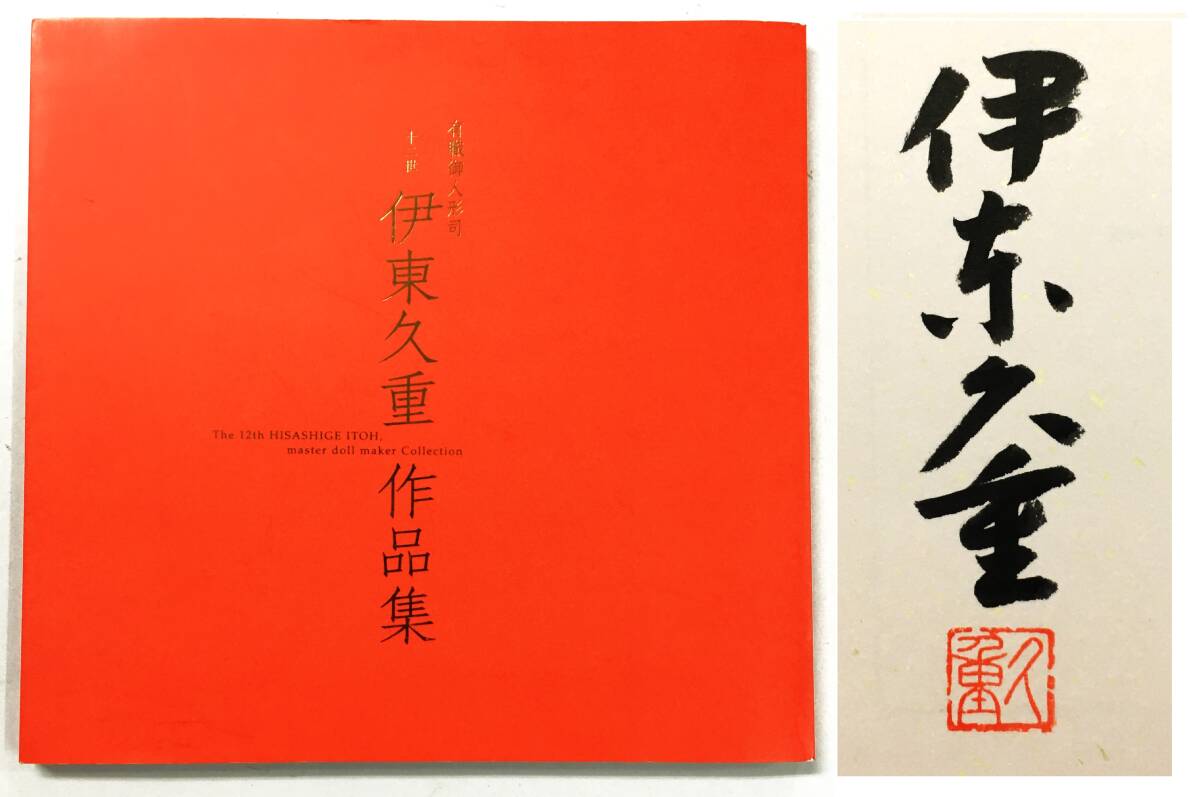 有職御人形司
十二世 伊東久重 作品集
The 12th HISASHIGE ITOH,
master doll maker Collection
伊东久重
久重